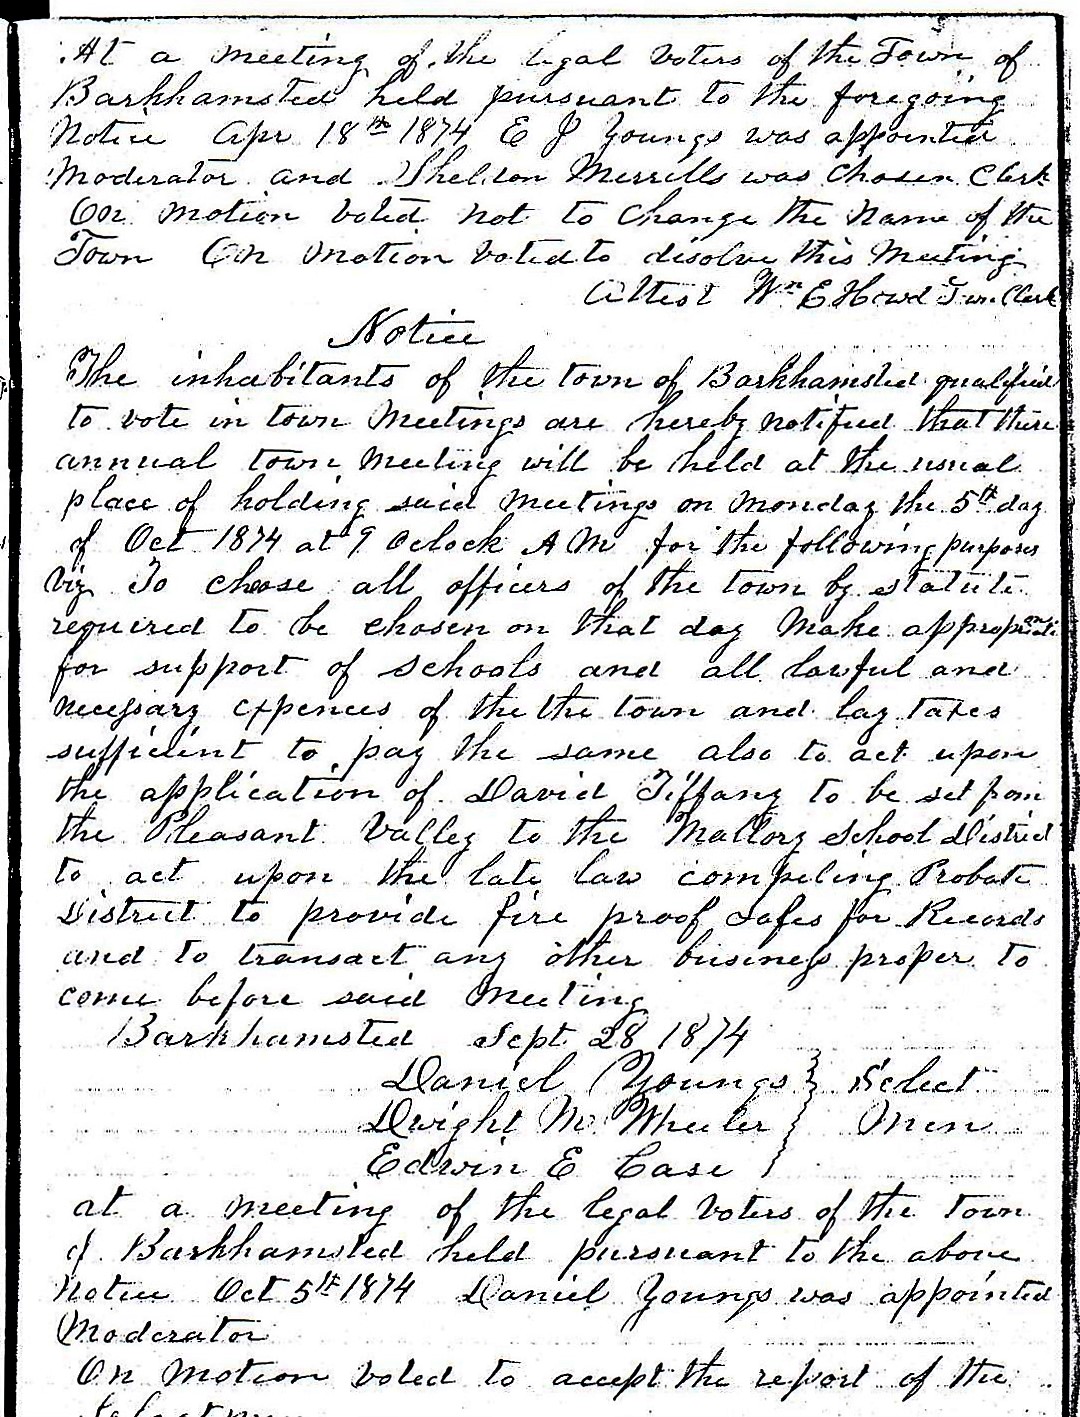 At a meeting of the legal voters of the Town of
Barkhamsted held pursuant to the foregoing
Notice Apr 18th 1874 E J Youngs was appointed
Moderator and Sheldon Merrills was chosen Clerk
On motion voted not to change the name of the
Town On motion voted to disolve this Meeting
Attest Wm E Howd Twn Clerk
Notice
The inhabitants of the town of Barkhamsted qualified
to vote in town Meetings are hereby notified that there
annual town meeting will be held at the usual
place of holding said meetings on Monday the 5th day
of Oct 1874 at 9 Oclock A M for the following purposes
Viz To choose all officers of the town by statute
required to be chosen on that day Make appropriations
for support of schools and all lawful and
necessary expences of the the town and lay taxes
sufficient to pay the same also to act upon
the application of David Tiffany to be set from
the Pleasant Valley to the Mallory School District
to act upon the late law compeling Probate
District to provide fire proof safes for Records
and to transact any other business proper to
come before said Meeting
Barkhamsted Sept 28 1874
Daniel Youngs } Select
Dwight M Wheeler } Men
Edwin E Case }
at a meeting of the legal voters of the town
of Barkhamsted held pursuant to the above
Notice Oct 5th 1874 Daniel Youngs was appointed
Moderator
On Motion voted to accept the report of the
Selectmen